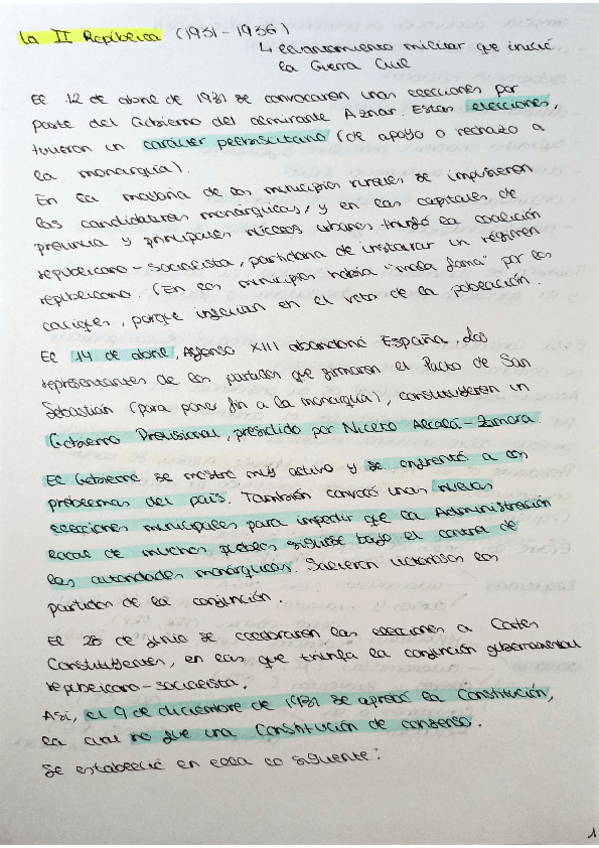 La II República (1931-1936)
↳ levantamiento militar que inició
la Guerra Civil
El 12 de abril de 1931 se convocaron unas elecciones por
parte del Gobierno del almirante Aznar. Estas elecciones,
tuvieron un carácter plebiscitario (de apoyo o rechazo a
la monarquía).
En la mayoría de los municipios rurales se impusieron
las candidaturas monárquicas, y en las capitales de
provincia y principales núcleos urbanos triunfó la coalición
republicano-socialista, partidaria de instaurar un régimen
republicano. (En los municipios había "mala fama" por los
caciques, porque influían en el voto de la población.
El 14 de abril, Alfonso XIII abandonó España. Los
representantes de los partidos que firmaron el Pacto de San
Sebastián (para poner fin a la monarquía), constituyeron un
Gobierno Provisional, presidido por Niceto Alcalá-Zamora.
El Gobierno se mostró muy activo y se enfrentó a los
problemas del país. También convocó unas nuevas
elecciones municipales para impedir que la Administración
local de muchos pueblos siguiese bajo el control de
las autoridades monárquicas. Salieron victoriosos los
partidos de la conjunción.
El 28 de junio se celebraron las elecciones a Cortes
Constituyentes, en las que triunfa la conjunción gubernamental
republicano-socialista.
Así, el 9 de diciembre de 1931 se aprobó la Constitución,
la cual no fue una Constitución de consenso.
Se estableció en ella lo siguiente:
1